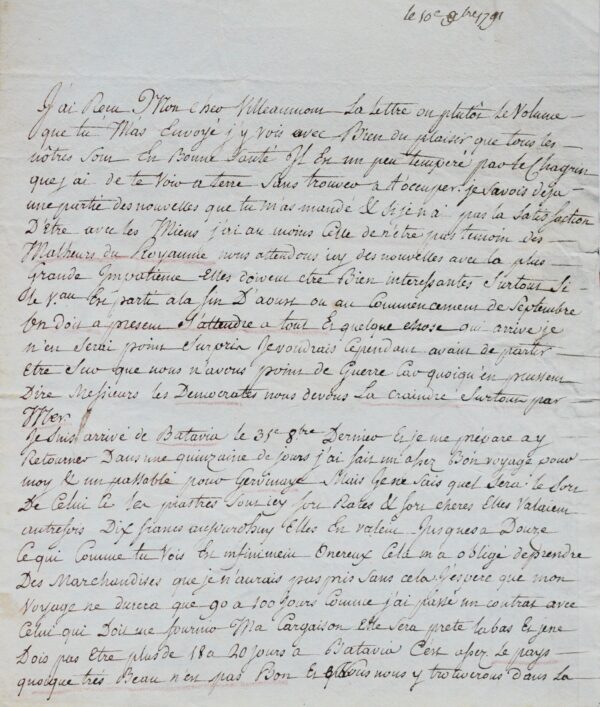 le 10e 9bre 1791
J'ai Recu Mon cher Villeaumont La Lettre ou plutôt Le Volume
que tu M'as Envoyé j'y vois avec Bien du plaisir que tous les
nôtres Sont En Bonne Santé Il En un peu temperé par le Chagrin
que j'ai de te Voir a terre Sans trouver a t'occuper. je Savois deja
une partie des nouvelles que tu m'as mandé & Si je n'ai pas la Satisfaction
D'Être avec les Miens j'ai au moins Celle de n'être pas temoin des
Malheurs du Royaume nous attendons icy des nouvelles avec la plus
grande Impatiente Elles doivent etre Bien interessantes Surtout Si
le Est partie a la fin D'aoust ou au Commencement de Septembre
On doit a present S'attendre a tout Et quelque chose qui arrive je
n'en Serai point Surpris Je voudrais Cependant avant de partir
Etre Sur que nous n'avons point de Guerre Car quoiqu'en puissent
Dire Messieurs les Democrates nous devons La craindre Surtout par
Mer
Je Suis arrivé de Batavia le 31e 8bre Dernier Et je me prépare a y
Retourner Dans une quinzaine de Jours j'ai fait un assez Bon voyage pour
moy & un passable pour Mais Je ne Sais quel Sera le Sort
De Celui Ci Les piastres Sont icy fort Rares & fort cheres Elles Valaient
autrefois Dix francs aujourd'huy Elles En valent Jusques a Douze
Ce qui Comme tu Vois Est infiniment Onereux Cela m'a obligé de prendre
Des Marchandises que je n'aurais pas pris Sans cela J'espere que mon
Voyage ne durera que 90 a 100 Jours Comme j'ai passé un contrat avec
Celui qui Doit me fournir Ma Cargaison Elle Sera prete la bas Et je ne
Dois pas Etre plus de 18 a 20 Jours a Batavia C'est assez. Le pays
quoique très Beau n'en pas Bon Et nous nous y trouverons dans la